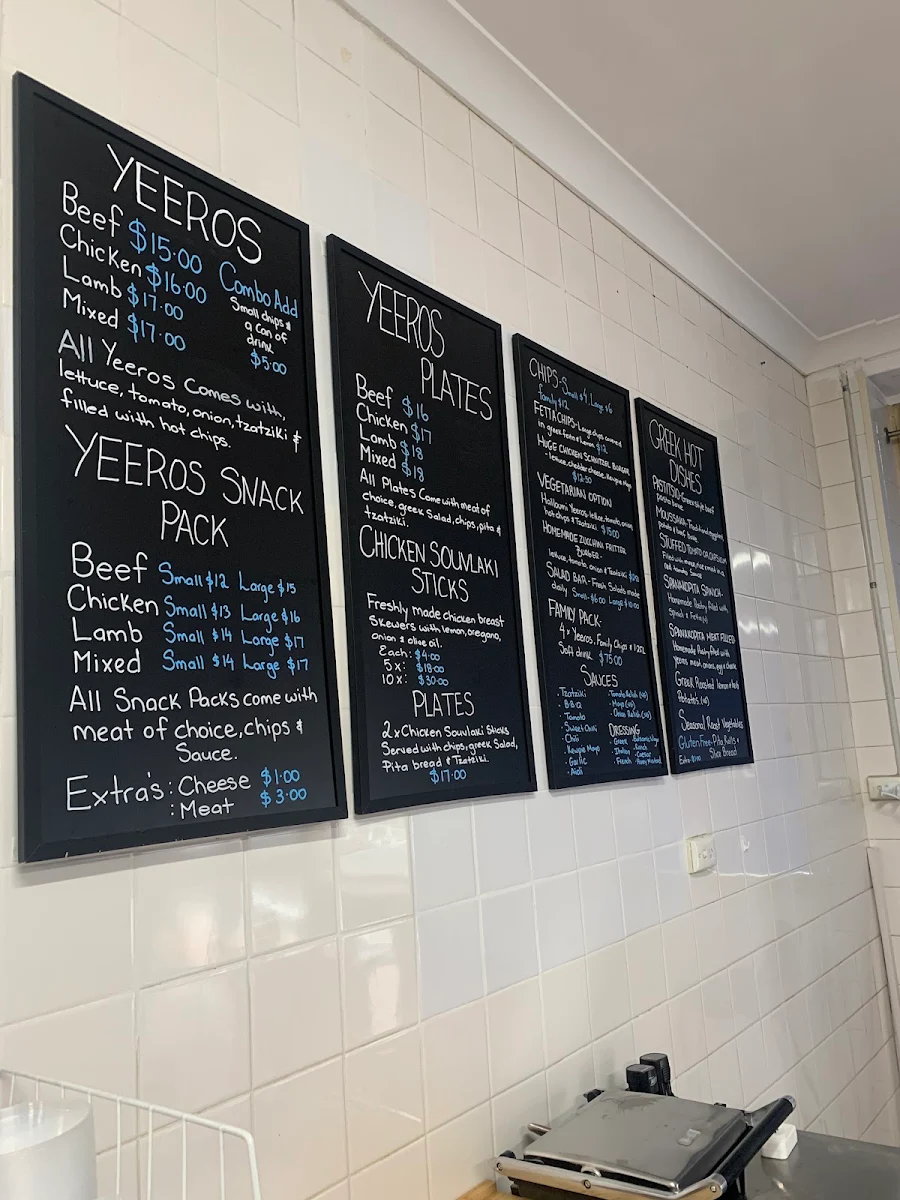 YEEROS
Beef $15.00
Chicken $16.00
Lamb $17.00
Mixed $17.00
Combo Add
Small chips &
a can of
drink
$5.00
All Yeeros Comes with,
lettuce, tomato, onion, tzatziki &
filled with hot chips.
YEEROS SNACK
PACK
Beef Small $12 Large $15
Chicken Small $13 Large $16
Lamb Small $14 Large $17
Mixed Small $14 Large $17
All Snack Packs come with
meat of choice, chips &
Sauce.
Extra's: Cheese $1.00
: Meat $3.00
YEEROS
PLATES
Beef $16
Chicken $17
Lamb $18
Mixed $18
All Plates Come with meat of
choice, greek Salad, chips, pita &
tzatziki.
CHICKEN SOUVLAKI
STICKS
Freshly made chicken breast
Skewers with lemon, oregano,
onion & olive oil.
Each: $4.00
5x: $18.00
10x: $30.00
PLATES
2x Chicken Souvlaki Sticks
Served with chips, greek Salad,
Pita bread & Tzatziki.
$17.00
CHIPS - Small Large
family $12
FETTA CHIPS - Large chips covered
in greek fetta & lemon $12
HUGE CHICKEN SCHNITZEL BURGER
- lettuce, cheddar cheese, Mayo
$12.50
VEGETARIAN OPTION
Halloumi Yeeros, lettuce, tomato, onion,
hot chips & Tzatziki $15.00
HOMEMADE ZUCCHINI FRITTER
BURGER -
lettuce, tomato, onion & Tzatziki
SALAD BAR - Fresh Salads made
daily Small - $6.00 Large $10.00
FAMILY PACK:
4 x Yeeros, Family Chips & 1.25L
Soft drink $75.00
SAUCES
. Tzatziki
. B.B.Q
. Tomato
. Sweet Chilli
. Chili
. Kewpie Mayo
. Garlic
. Aioli
. Tomato Relish
. Mayo
. Onion Relish
DRESSING
. Greek
. Italian
. French
. Ranch
. Caesar
. Honey Mustard
GREEK HOT
DISHES
PASTITSIO - Greek style beef
pasta bake
MOUSSAKA -
potato & beef bake
STUFFED TOMATO OR CAPSICUM
Filled with
Tomato Sauce
SPANAKOPITA SPINACH -
Homemade Pastry filled with
Spinach &
SPANAKOPITA MEAT FILLED
Homemade Pastry filled with
yeeros meat, onion, egg & cheese.
Greek Roasted lemon & herb
Potatoes.
Seasonal Roast Vegetables
Gluten Free - Pita, Rolls &
Slice Bread
Extra